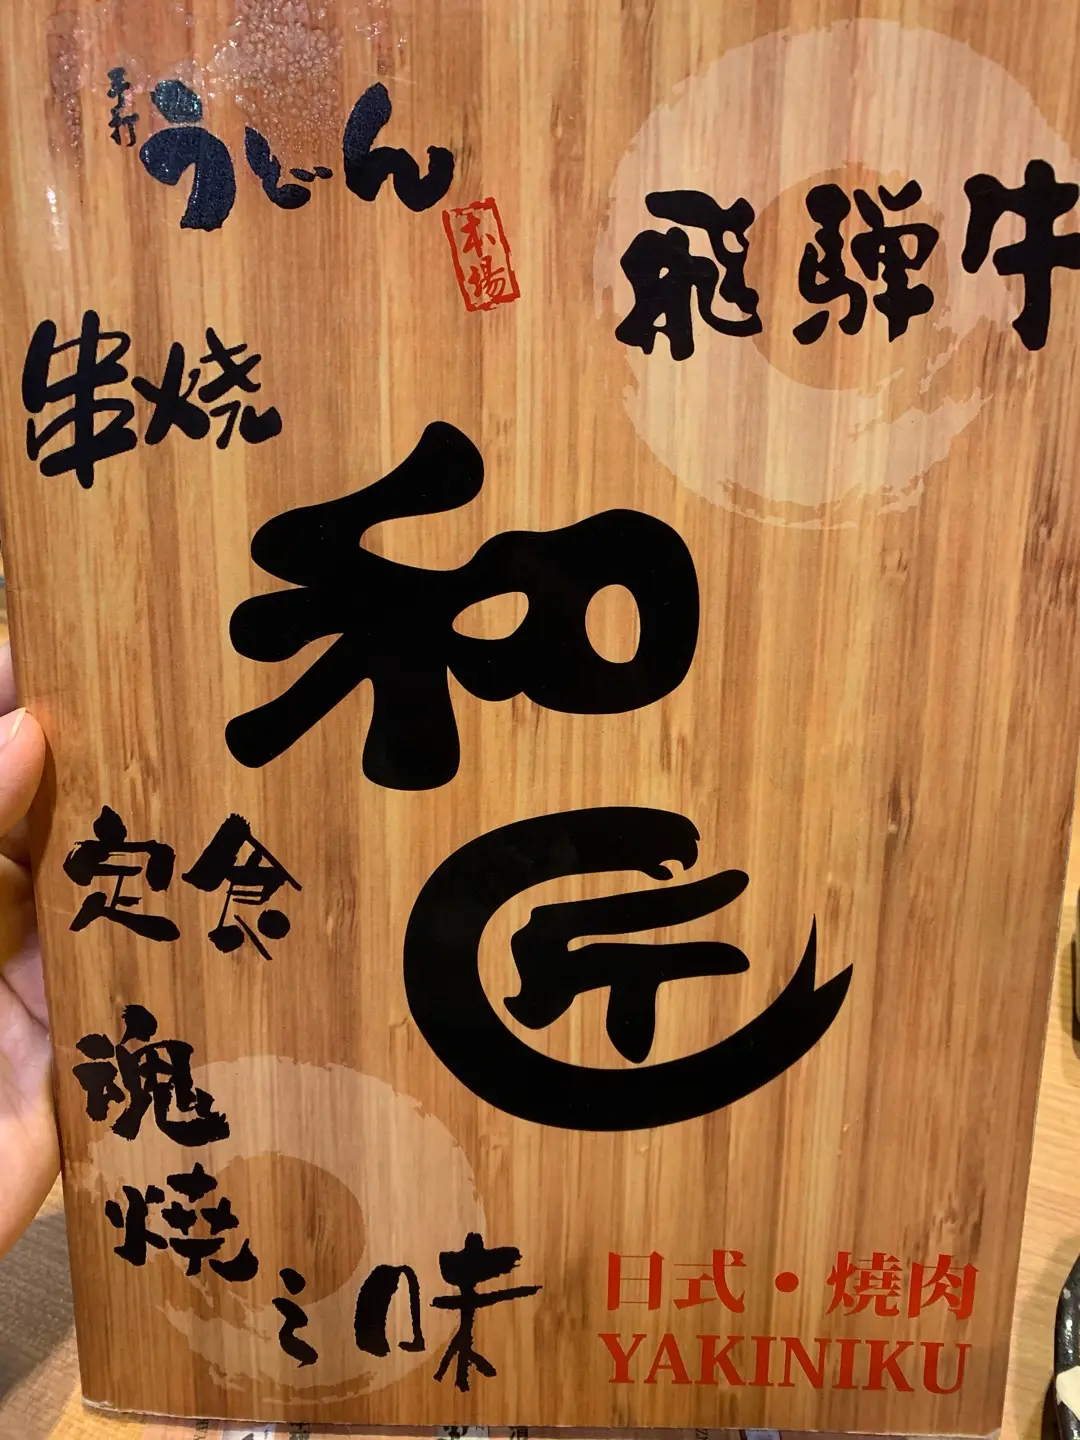 手打
うどん
本場
飛騨牛
串焼
和
匠
定食
魂
燒
之味
日式・燒肉
YAKINIKU